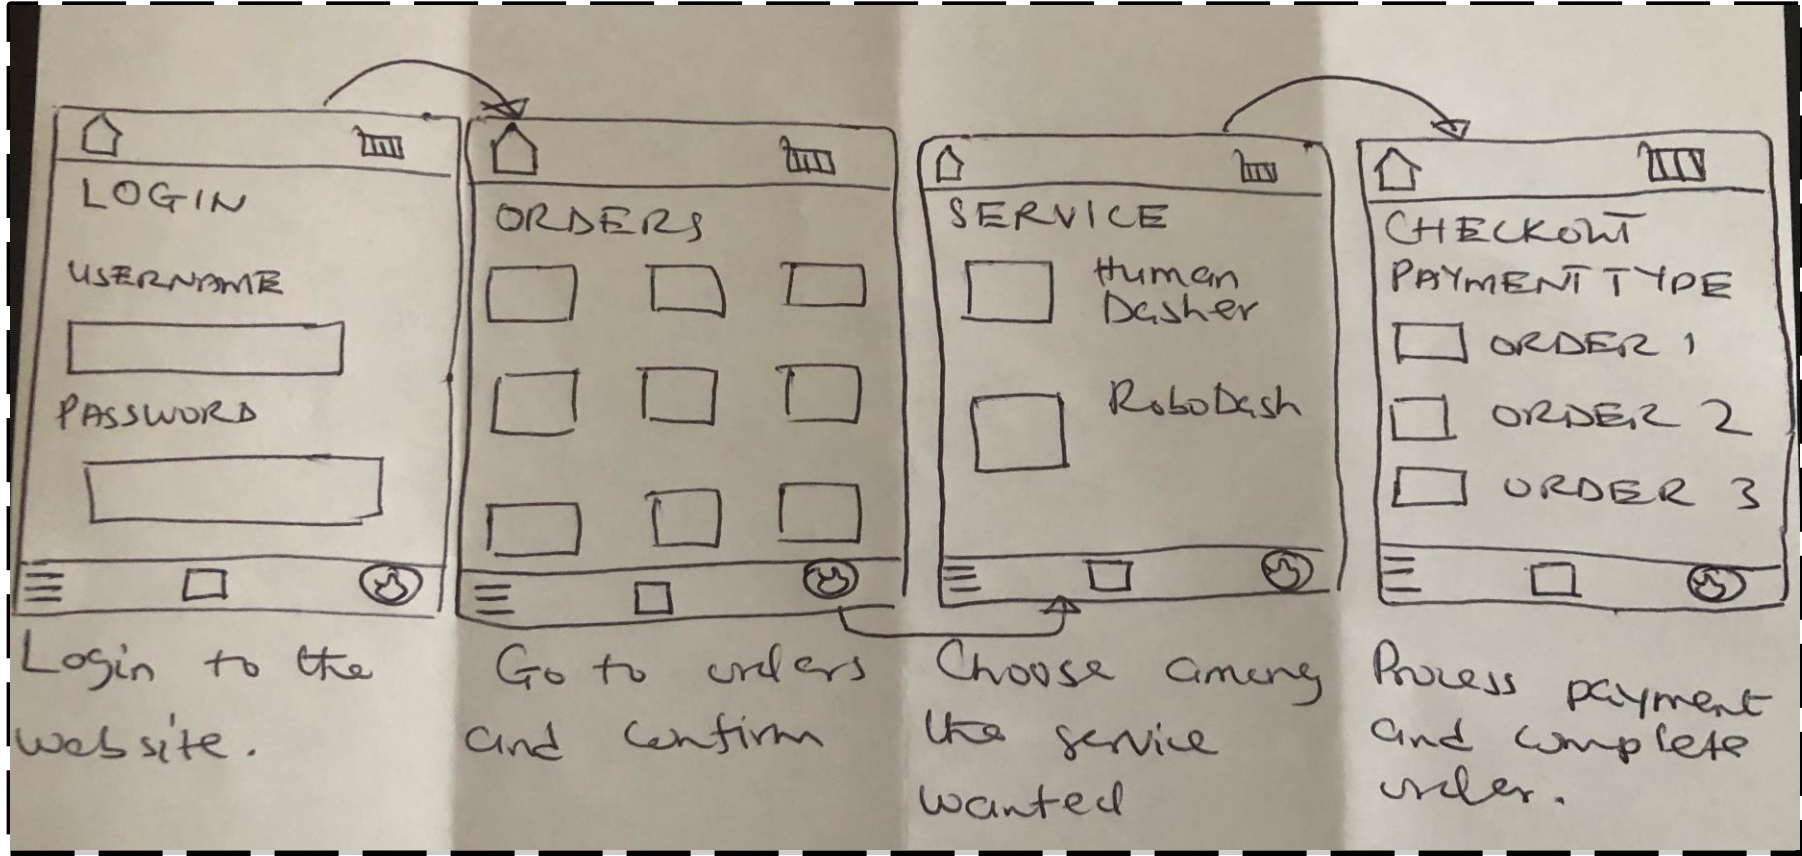 LOGIN
USERNAME
PASSWORD
Login to the
website.
ORDERS
Go to orders
and confirm
SERVICE
Human
Dasher
RoboDash
Choose among
the service
wanted
CHECKOUT
PAYMENT TYPE
ORDER 1
ORDER 2
ORDER 3
Process payment
and complete
order.